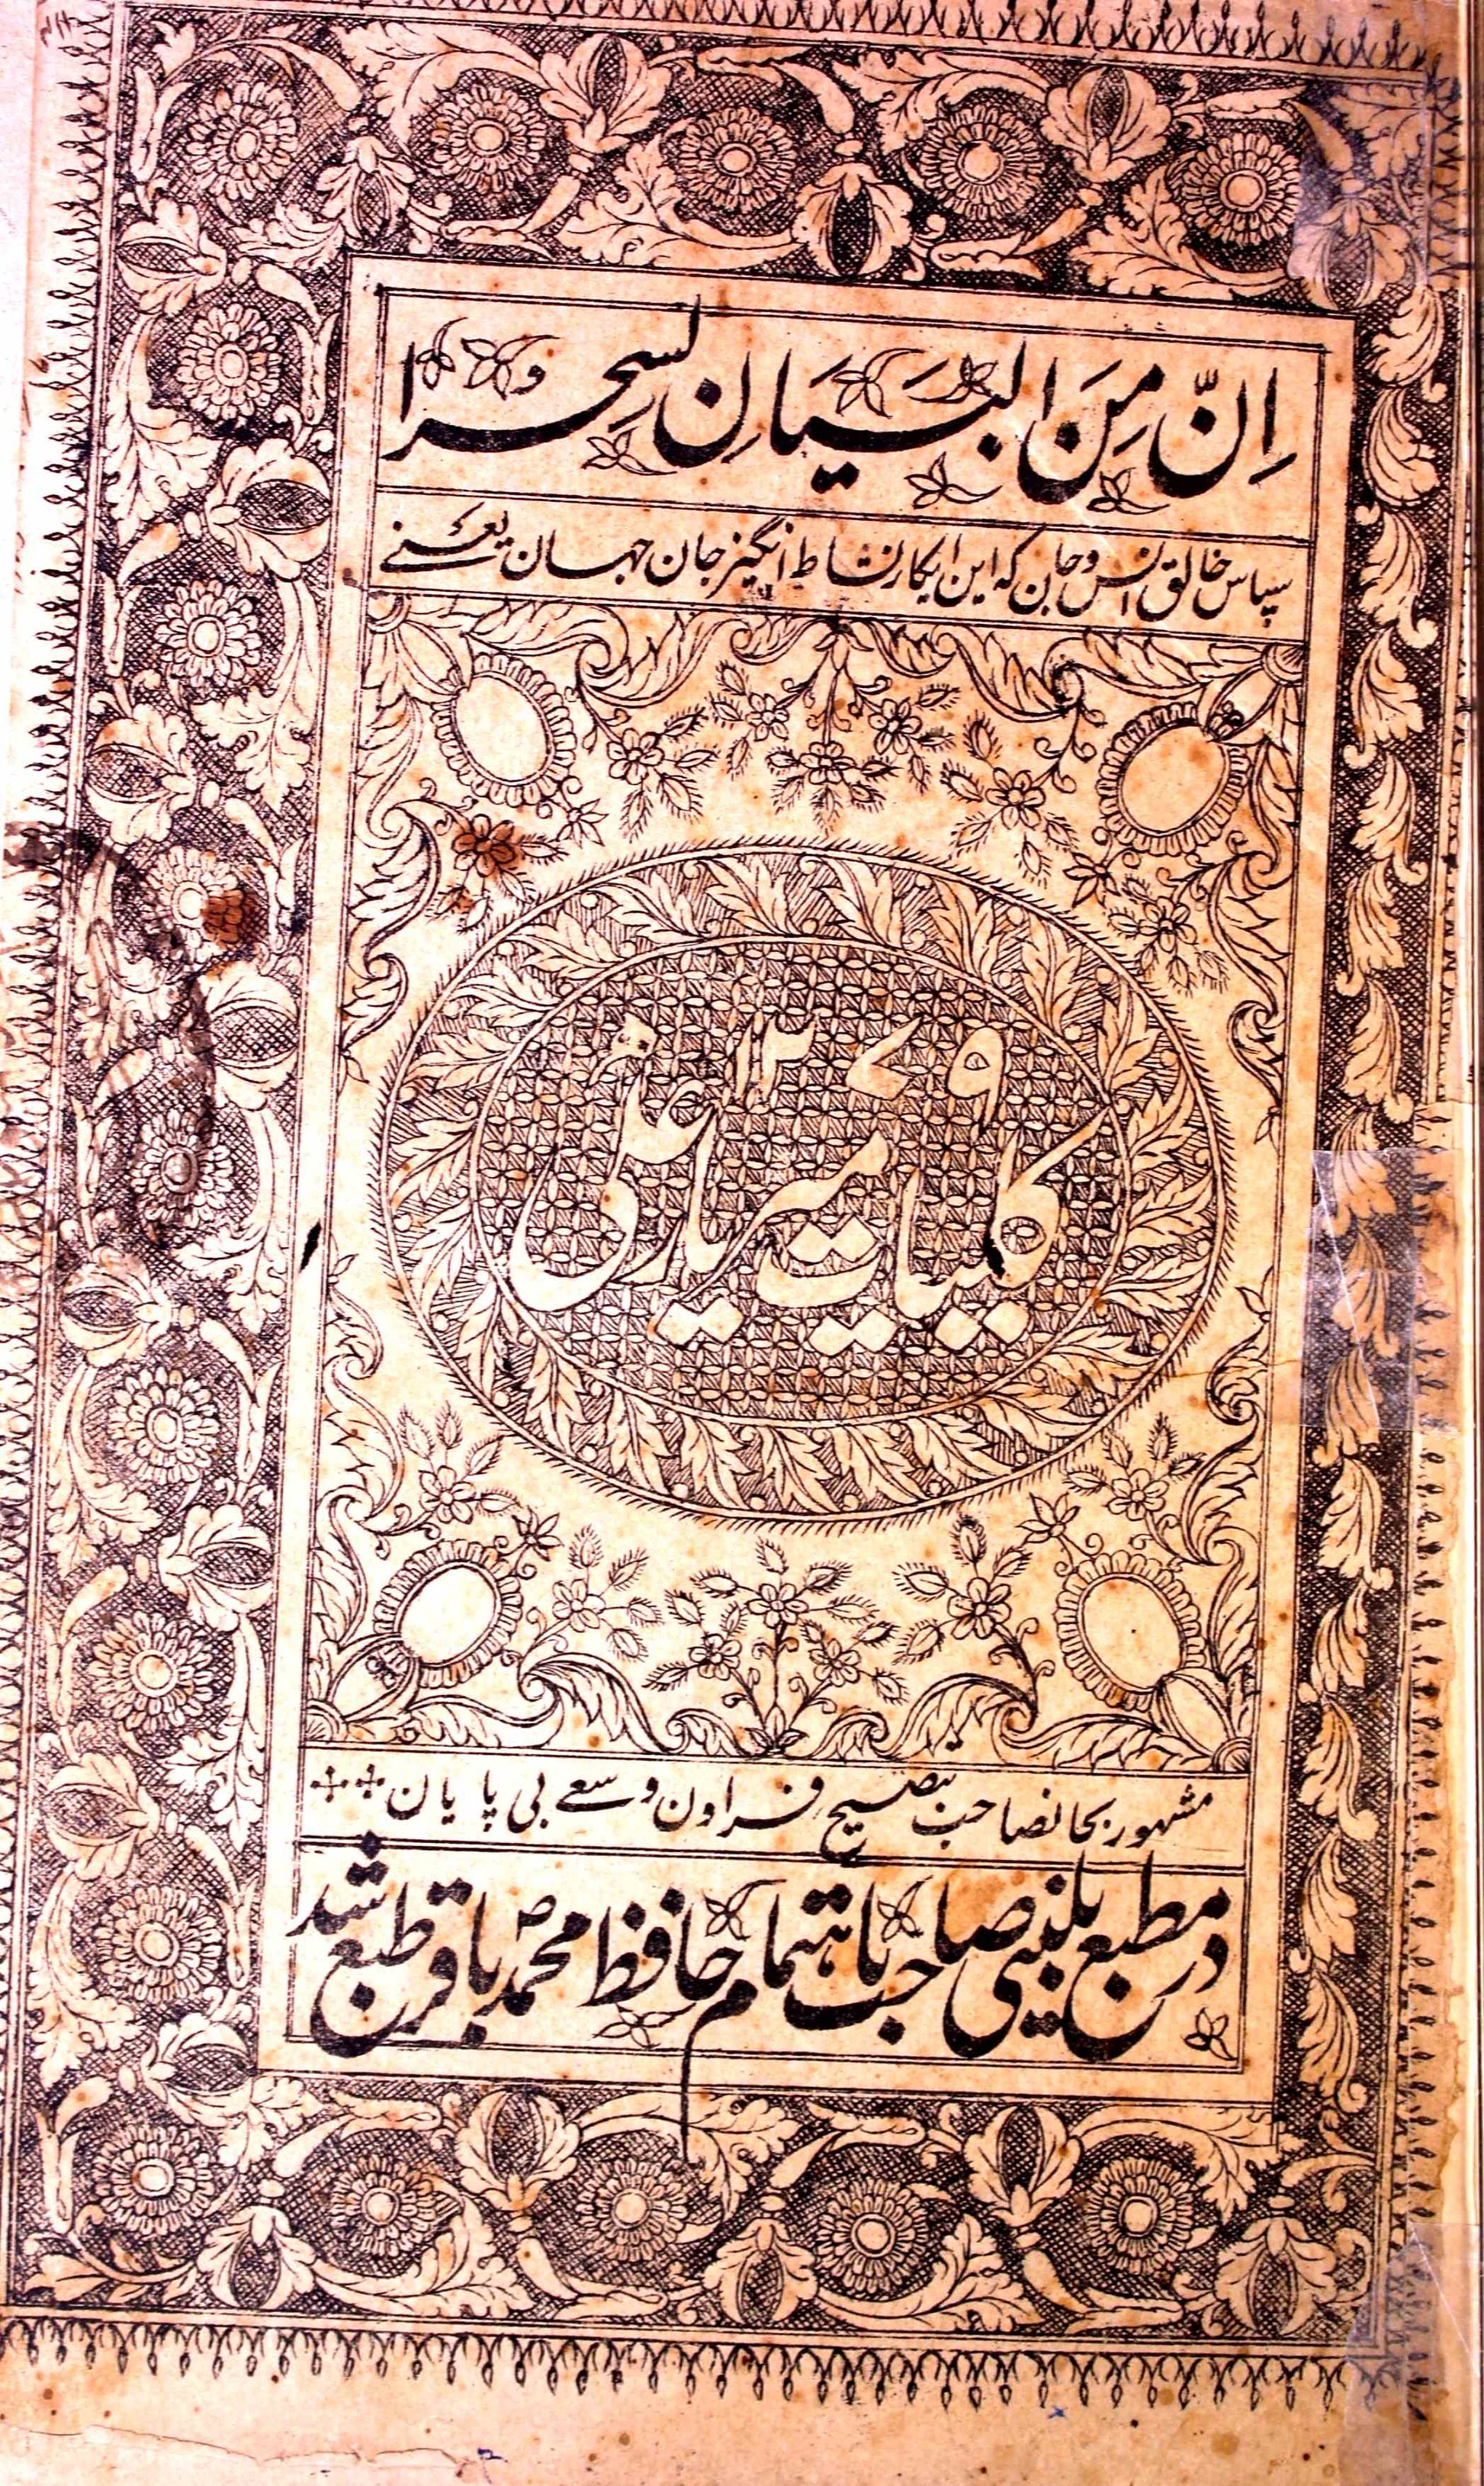 اِنَّ مِنَ البَیَانِ لَسِحرا و
سپاس خالق انس و جان که این ایکار نشاط انگیز جان جهان یعنے
۱۲۷۹
کلیات میر یار علی
مشهور بجانصاحب بتصحیح فراون و سعے بی پایان
در مطبع بلنیی صاحب باهتمام حافظ محمد باقر طبع شد